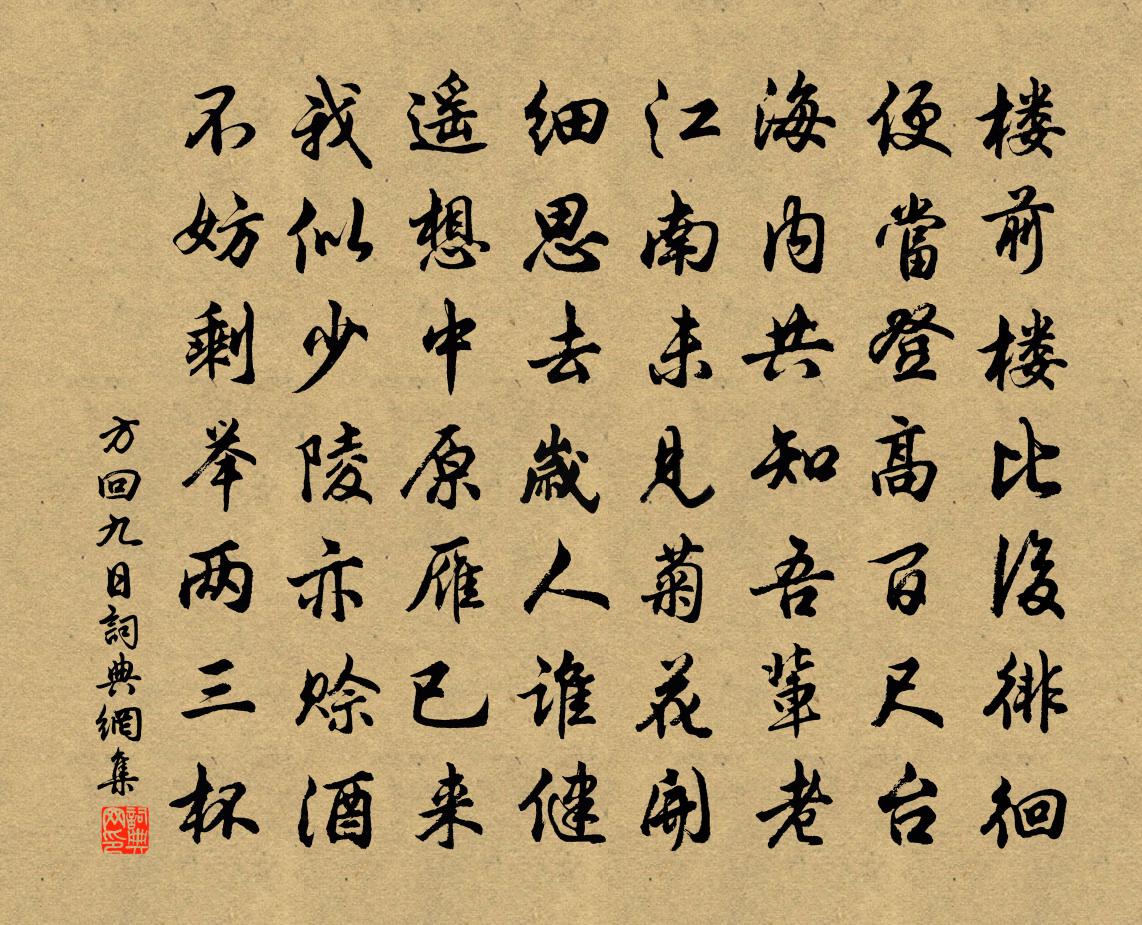 楼前楼比后徘徊
便當登高百尺台
海内共知吾軰老
江南未見菊花開
细思去歲人谁健
遥想中原雁已来
我似少陵亦赊酒
不妨剩举两三杯
方回九日詞典網集
詞典網印